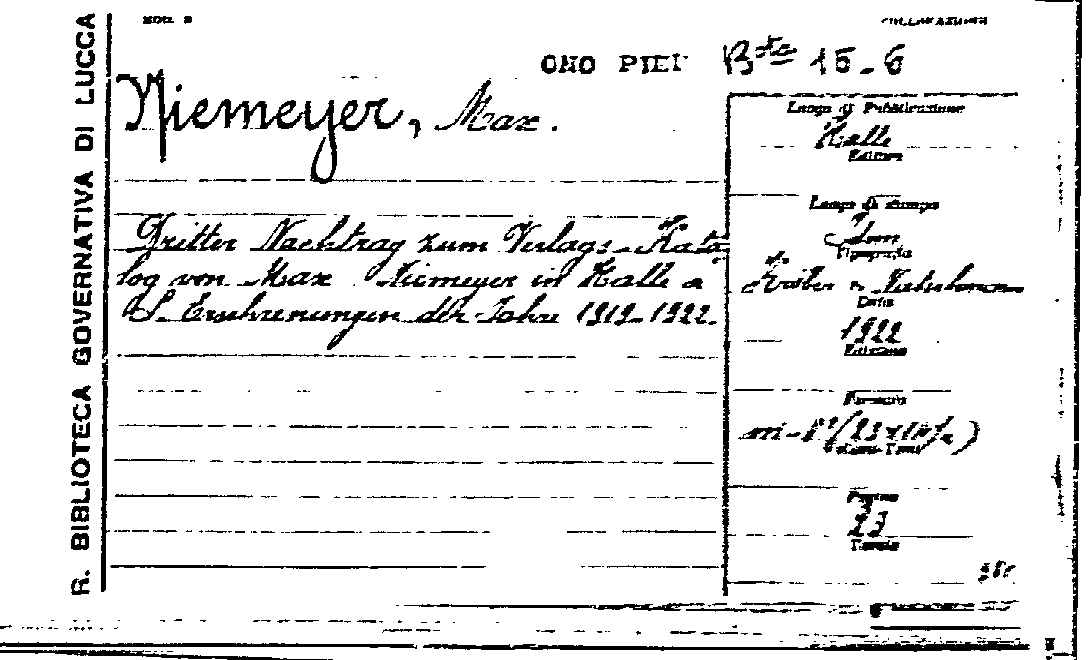 R. BIBLIOTECA GOVERNATIVA DI LUCCA
MOD. 2
COLLOCAZIONE
B.ta 15-6
Niemeyer, Max.
Dritter Nachtrag zum Verlags-Kata-
log von Max Niemeyer in Halle a
S. der Jahre 1919-1922.
Luogo di Pubblicazione
Halle
Editore
Luogo di stampa
Tipografia
Data
1922
Edizione
Formato
Pagine
23
Tavole